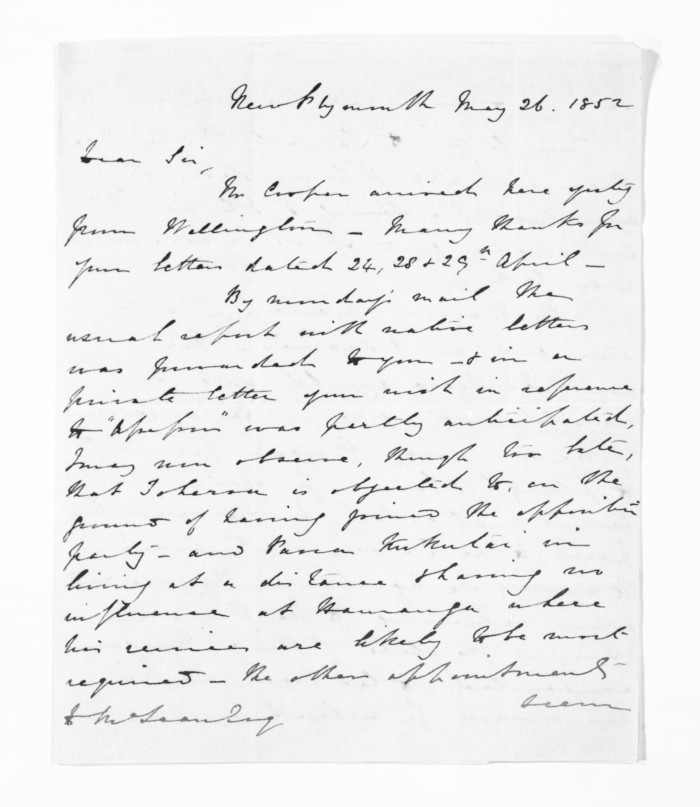 New Plymouth May 26. 1852
Dear Sir,
Mr Cooper arrived here ysty
from Wellington — Many thanks for
your letters dated 24, 28 & 29th April —
By mondays mail the
usual report with native letters
was forwarded to you — & in a
private letter your wish in reference
to "was partly anticipated,
I may now observe, though too late,
that is objected to, on the
ground of having joined the opposition
party — and Kukutai in
living at a distance & having no
influence at where
his services are likely to be most
required — The other appointments
seem
D McLean Esq